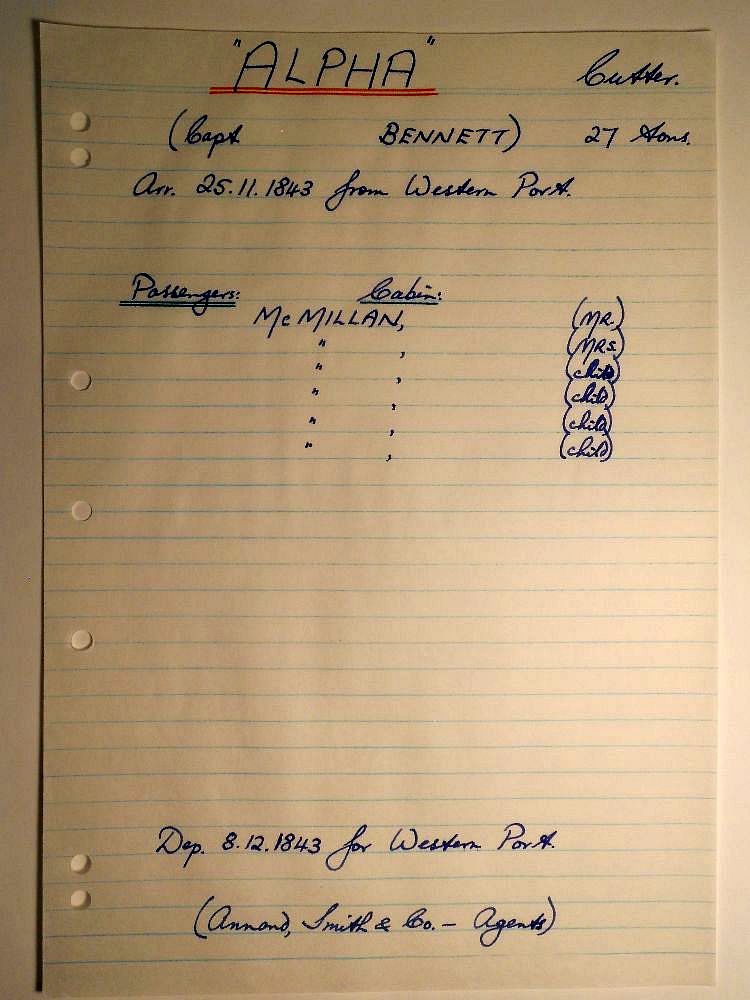 "ALPHA" Cutter.
(Capt BENNETT) 27 tons.
Arr. 25.11.1843 from Western Port.
Passengers: Cabin:
McMILLAN, (MR.)
" , (MRS.)
" , (child)
" , (child)
" , (child)
" , (child)
Dep. 8.12.1843 for Western Port.
(Annand, Smith & Co. – Agents)